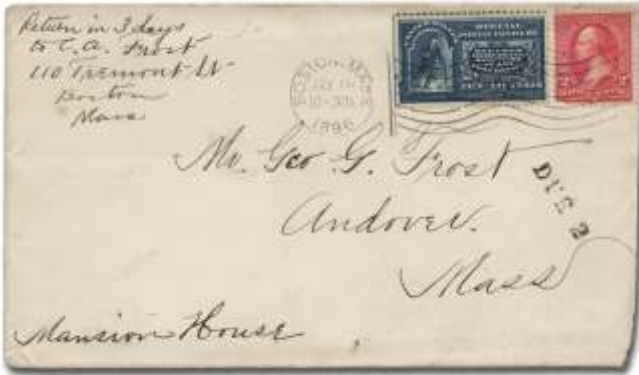 Return in 3 days
to C. A. Frost
110 Tremont St
Boston
Mass
BOSTON, MASS.
1896
Mr. Geo G. Frost
Andover.
Mass
DUE 2
Mansion House